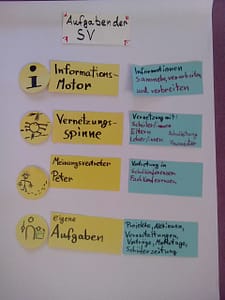 Aufgaben der
SV
i
Informations-
Motor
Informationen
Sammeln, verarbeiten
und verbreiten
Vernetzungs-
spinne
Vernetzung mit:
Schüler:innen
Eltern
Lehrer:innen
Schulleitung
Meinungsvertreter
Peter
Vertretung in
Schulkonferenzen
Fachkonferenzen
eigene
Aufgaben
Projekte, Aktionen,
Veranstaltungen,
Vorträge, Mottotage,
Schülerzeitung